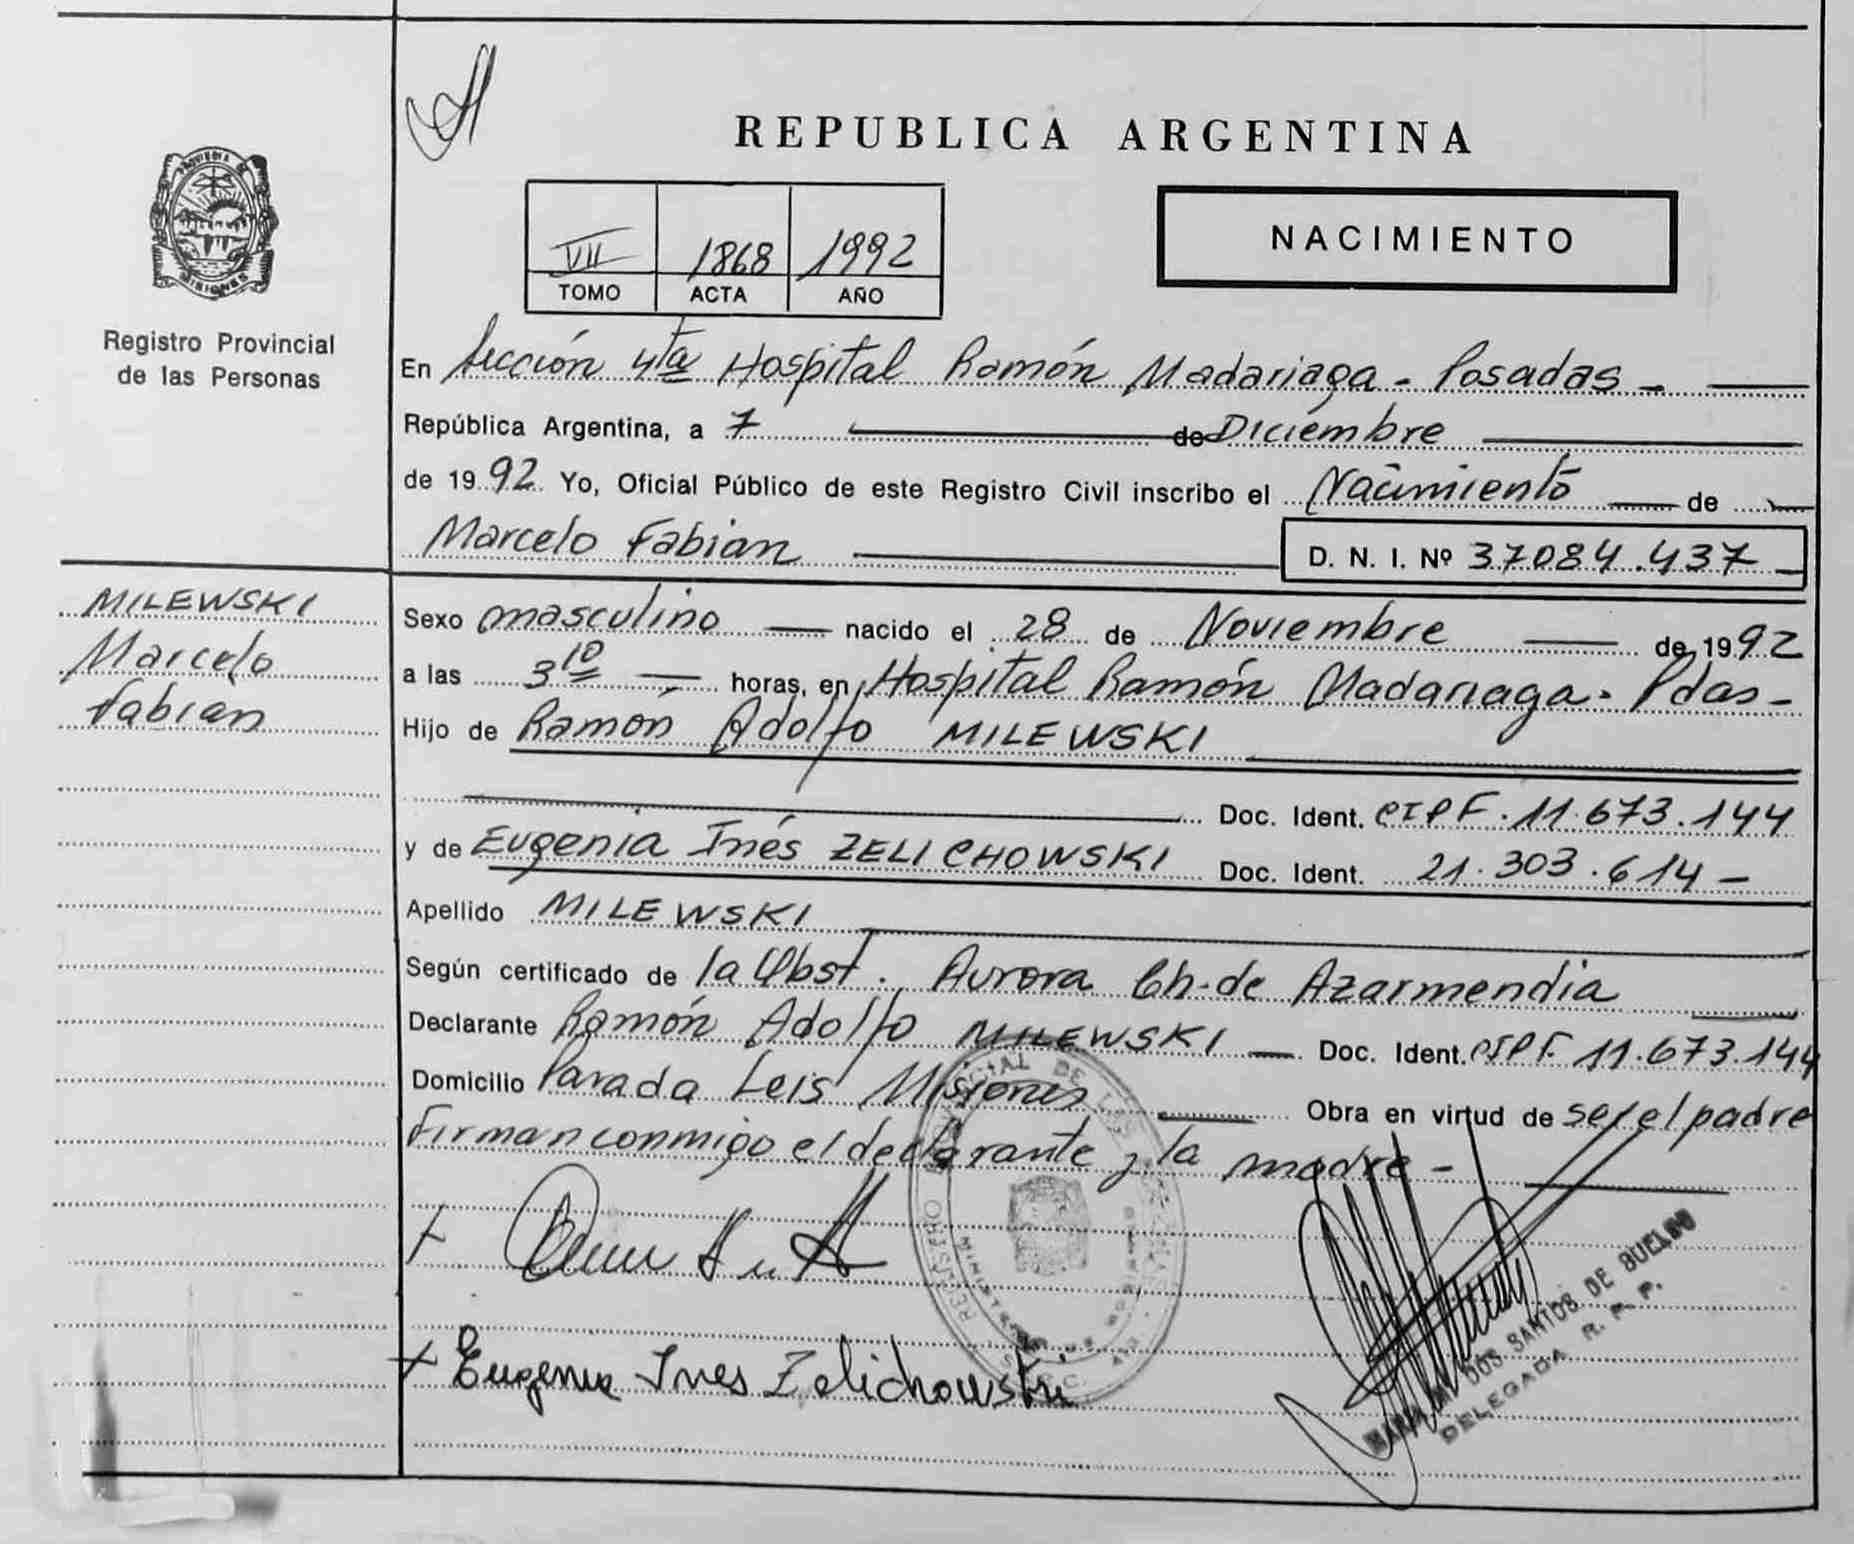 REPUBLICA ARGENTINA
PROVINCIA DE
MISIONES
Registro Provincial
de las Personas
VII 1868 1992
TOMO ACTA AÑO
NACIMIENTO
En Sección 4ta Hospital Ramón Madariaga - Posadas -
República Argentina, a 7 de Diciembre
de 1992 Yo, Oficial Público de este Registro Civil inscribo el Nacimiento de
Marcelo Fabian D. N. I. Nº 37084.437
MILEWSKI
Marcelo
Fabián
Sexo masculino nacido el 28 de Noviembre de 1992
a las 3 10 horas, en Hospital Ramón Madariaga - Pdas -
Hijo de Ramón Adolfo MILEWSKI
Doc. Ident. CIPF. 11.673.144
y de Eugenia Inés ZELICHOWSKI Doc. Ident. 21.303.614 -
Apellido MILEWSKI
Según certificado de la Obst. Aurora Ch. de Azarmendia
Declarante Ramón Adolfo MILEWSKI Doc. Ident. CIPF. 11.673.144
Domicilio Parada Leis Misiones Obra en virtud de ser el padre
Firman conmigo el declarante y la madre -
Eugenia Ines Zelichowski
DOS SANTOS DE BUELDO
DELEGADA R. P. P.